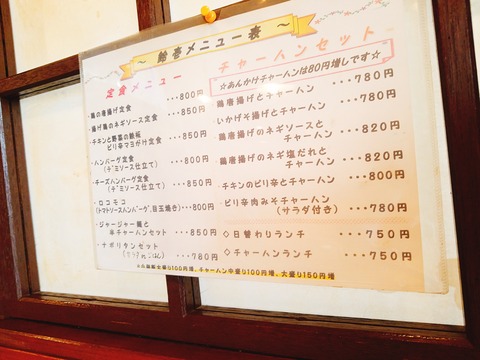 ～ 鈴壱メニュー表 ～
定食メニュー
・鶏の唐揚げ定食 ・・・800円
・揚げ鶏のネギソース定食 ・・・850円
・チキンと野菜の鉄板
ピリ辛マヨがけ定食 ・・・850円
・ハンバーグ定食
(デミソース仕立て) ・・・800円
・チーズハンバーグ定食
(デミソース仕立て) ・・・850円
・ロコモコ
(トマトソースハンバーグ、目玉焼き)・・800円
・ジャージャー麺と
半チャーハンセット ・・・850円
・ナポリタンセット
・・・780円
チャーハンセット
☆あんかけチャーハンは80円増しです☆
・鶏唐揚げとチャーハン ・・・780円
・いかげそ揚げとチャーハン ・・・780円
・鶏唐揚げのネギソースと
チャーハン ・・・820円
・鶏唐揚げのネギ塩だれと
チャーハン ・・・820円
・チキンのピリ辛とチャーハン ・・・800円
・ピリ辛肉みそチャーハン
(サラダ付き) ・・・780円
◇日替わりランチ ・・・750円
◇チャーハンランチ ・・・750円
大盛り100円増、チャーハン中盛り100円増、大盛り150円増